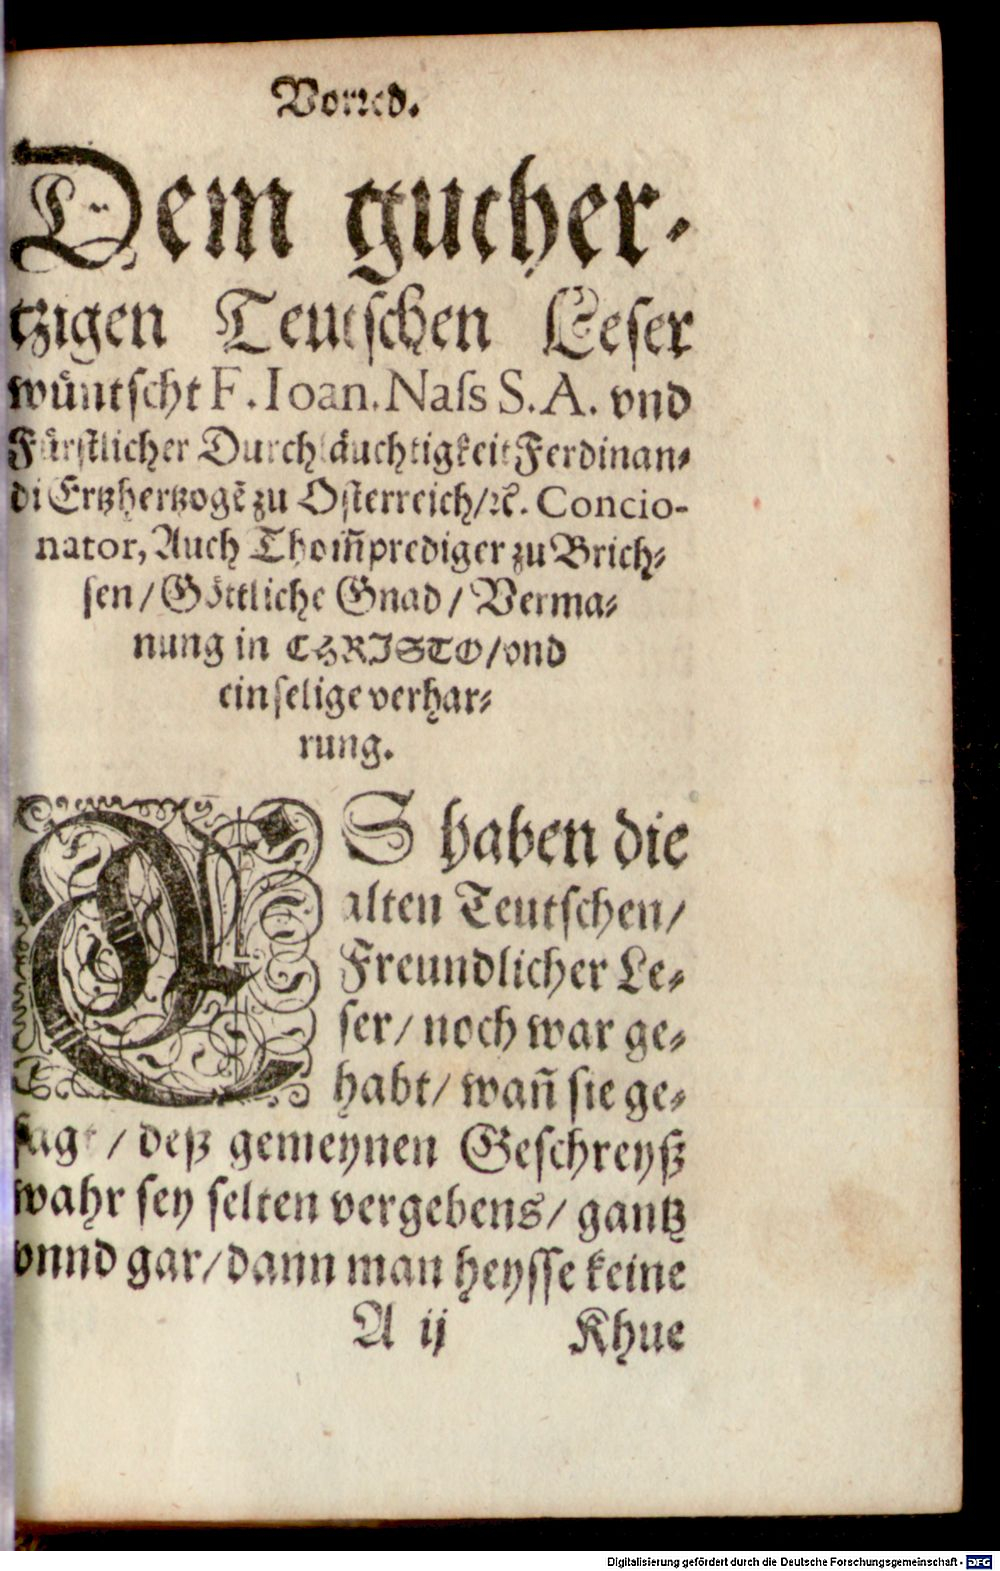 Vorred.
Dem guther-
tzigen Teutschen Leser
wüntscht F. Ioan. Nass S. A. vnd
Fürstlicher Durchläuchtigkeit Ferdinan-
di Ertzhertzogē zu Osterreich/ꝛc. Concio-
nator, Auch Thom̃prediger zu Brich-
sen/Göttliche Gnad/Verma-
nung in CHRISTO/vnd
ein selige verhar-
rung.
ES haben die
alten Teutschen/
Freundlicher Le-
ser/ noch war ge-
habt/ wañ sie ge-
sagt/ deß gemeynen Geschreyß
wahr sey selten vergebens/ gantz
vnnd gar/dann man heysse keine
A ij Khue
Digitalisierung gefördert durch die Deutsche Forschungsgemeinschaft - DFG